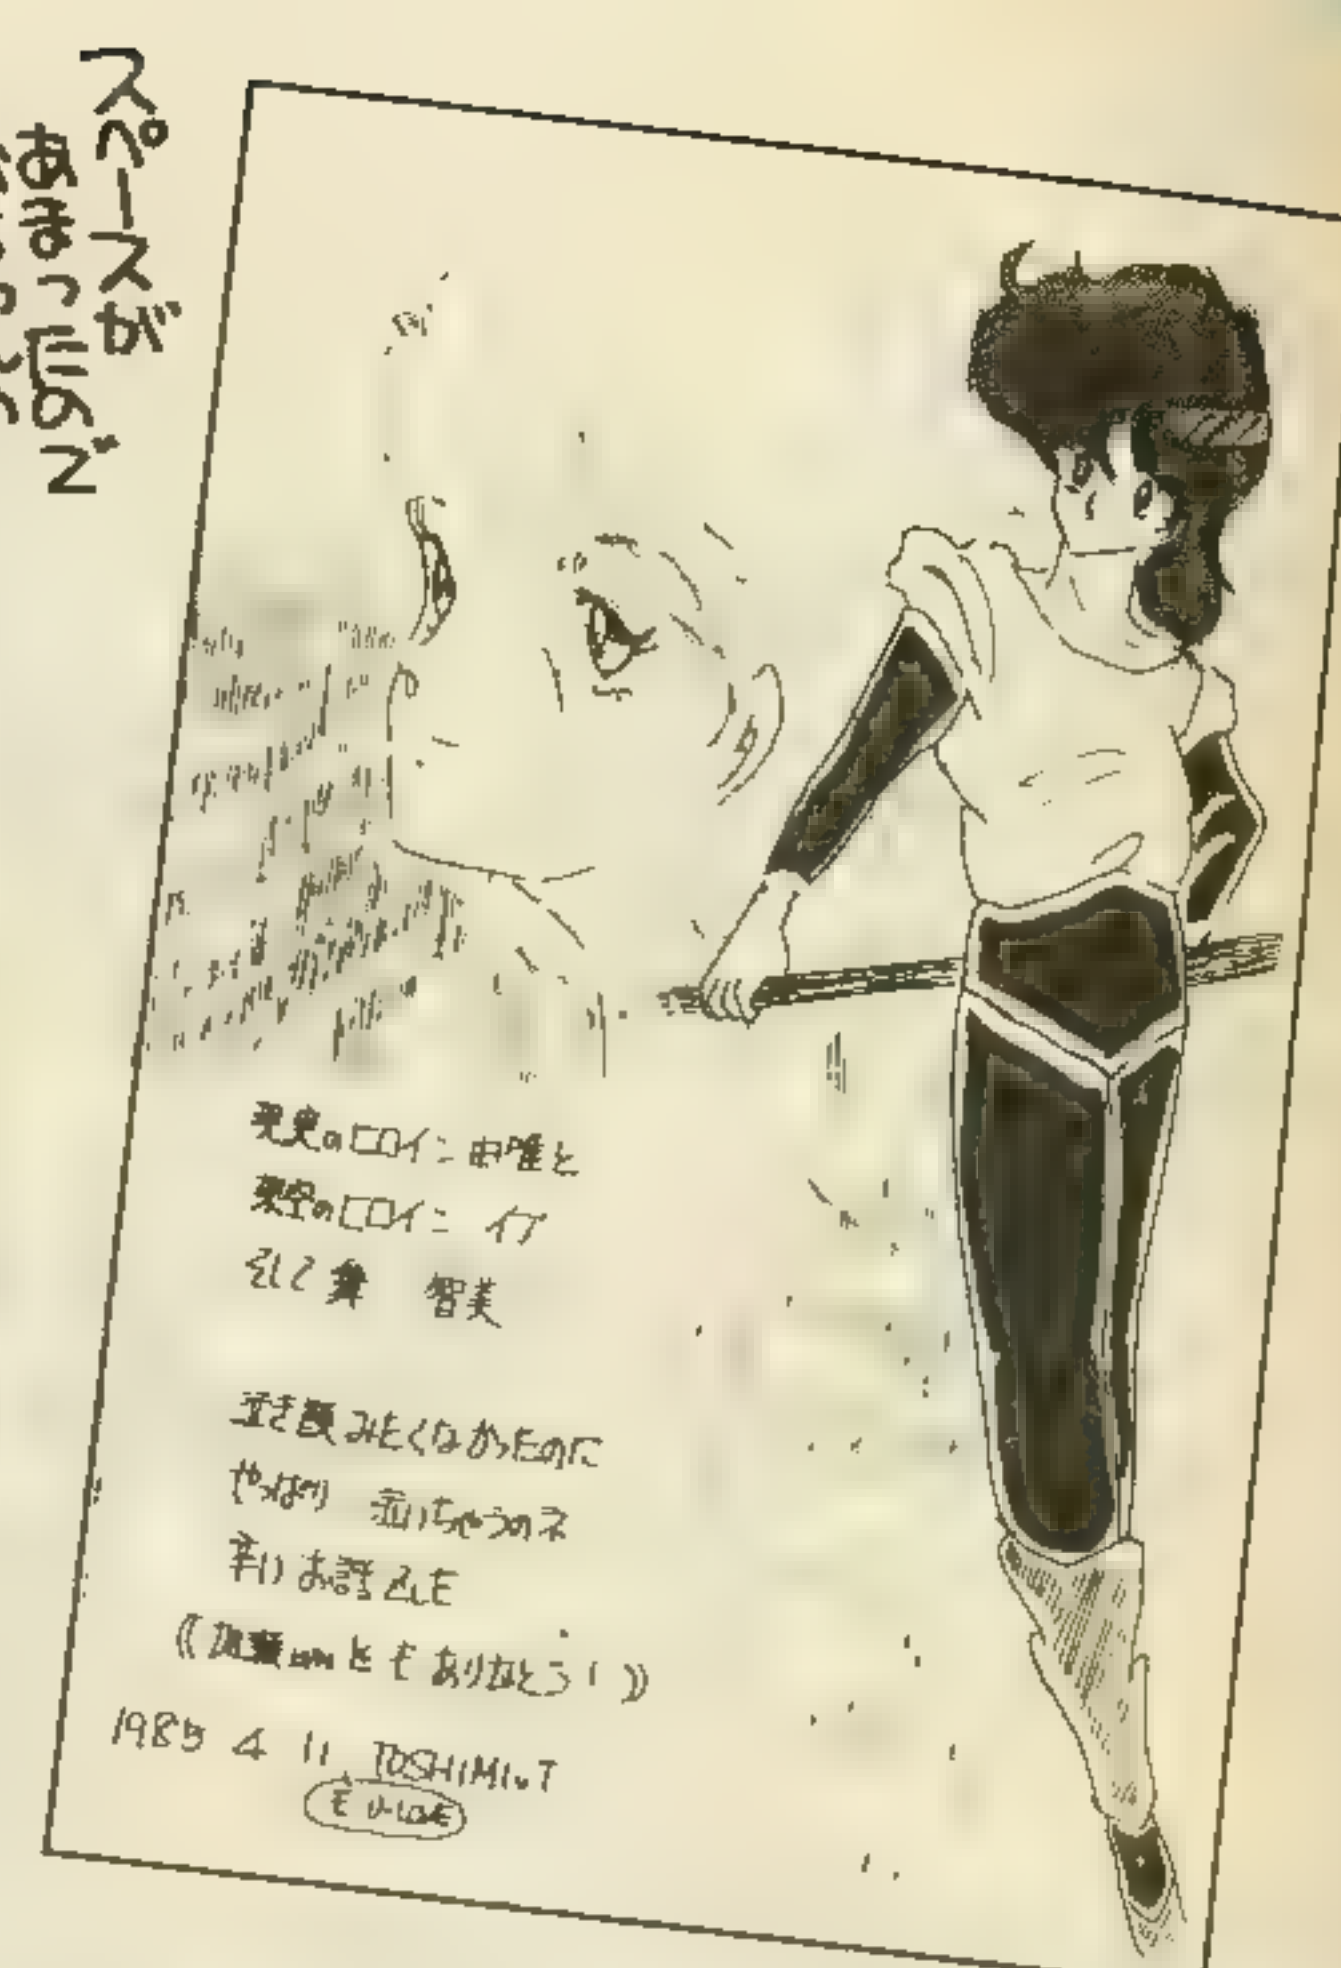 スペースが
あまったので
現実のヒロイン 由唯と
架空のヒロイン イブ
そして舞 智美
泣き顔みたくなかったのに
やっぱり 泣いちゃうのネ
辛いお話でした
とも ありがとう!
1985 4 11 TOSHIMI.T